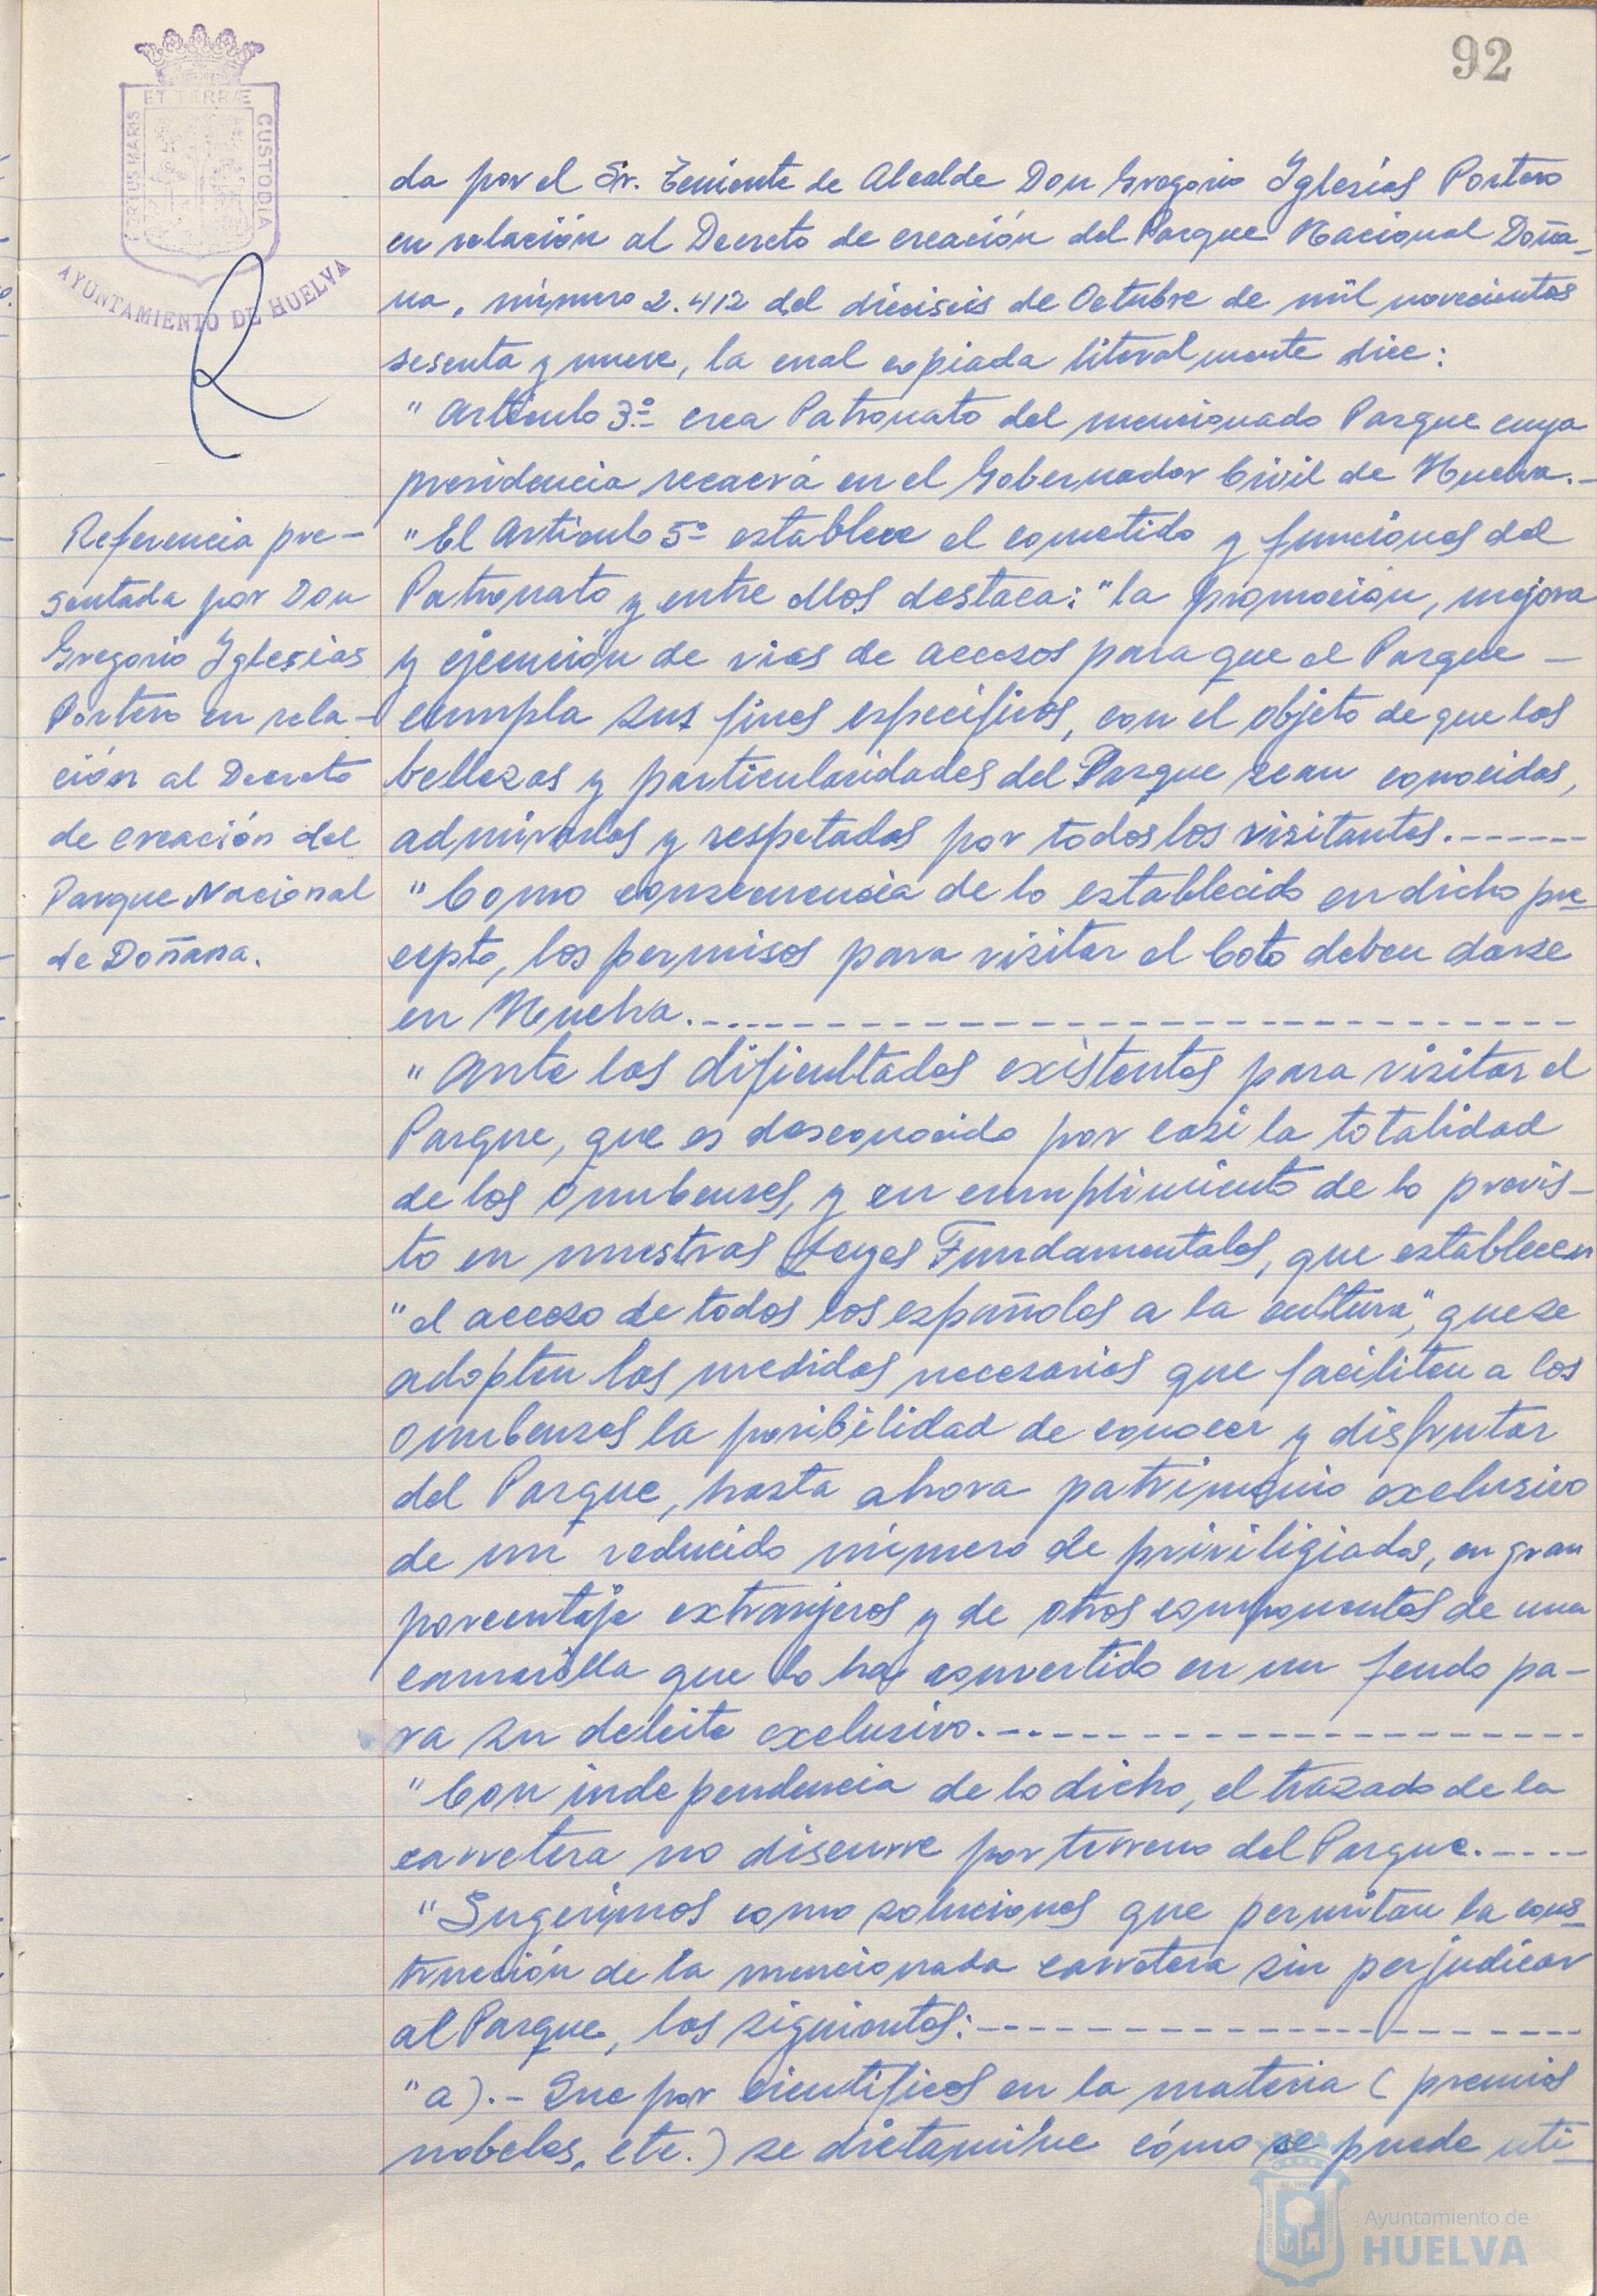 92
ET TERRÆ
PORTUS MARIS
CUSTODIA
AYUNTAMIENTO DE HUELVA
da por el Sr. Teniente de Alcalde Don Gregorio Iglesias Portero
en relación al Decreto de creación del Parque Nacional Doña-
na, número 2.412 del dieciseis de Octubre de mil novecientos
sesenta y nueve, la cual copiada literalmente dice:
"Artículo 3º.- crea Patronato del mencionado Parque cuya
presidencia recaerá en el Gobernador Civil de Huelva.-
"El Artículo 5º establece el cometido y funciones del
Patronato y entre ellos destaca: "la promoción, mejora
y ejecución de vías de accesos para que el Parque -
cumpla sus fines específicos, con el objeto de que las
bellezas y particularidades del Parque sean conocidas,
admiradas y respetadas por todos los visitantes.------
"Como consecuencia de lo establecido en dicho pre-
cepto, los permisos para visitar el Coto deben darse
en Huelva.------------------------------
"Ante las dificultades existentes para visitar el
Parque, que es desconocido por casi la totalidad
de los onubenses, y en cumplimiento de lo previs-
to en nuestras Leyes Fundamentales, que establecen
"el acceso de todos los españoles a la cultura", que se
adopten las medidas necesarias que faciliten a los
onubenses la posibilidad de conocer y disfrutar
del Parque, hasta ahora patrimonio exclusivo
de un reducido número de priviligiados, en gran
porcentaje extranjeros y de otros componentes de una
camarilla que lo ha convertido en un feudo pa-
ra su deleite exclusivo.--------------------
"Con independencia de lo dicho, el trazado de la
carretera no discurre por terreno del Parque.-----
"Sugerimos como soluciones que permitan la cons-
trucción de la mencionada carretera sin perjudicar
al Parque, las siguientes:--------------------
"a).- Que por cientificos en la materia (premios
nobeles, etc.) se dictamine cómo se puede uti-
Referencia pre-
sentada por Don
Gregorio Iglesias
Portero en rela-
ción al Decreto
de creación del
Parque Nacional
de Doñana.
Ayuntamiento de
HUELVA